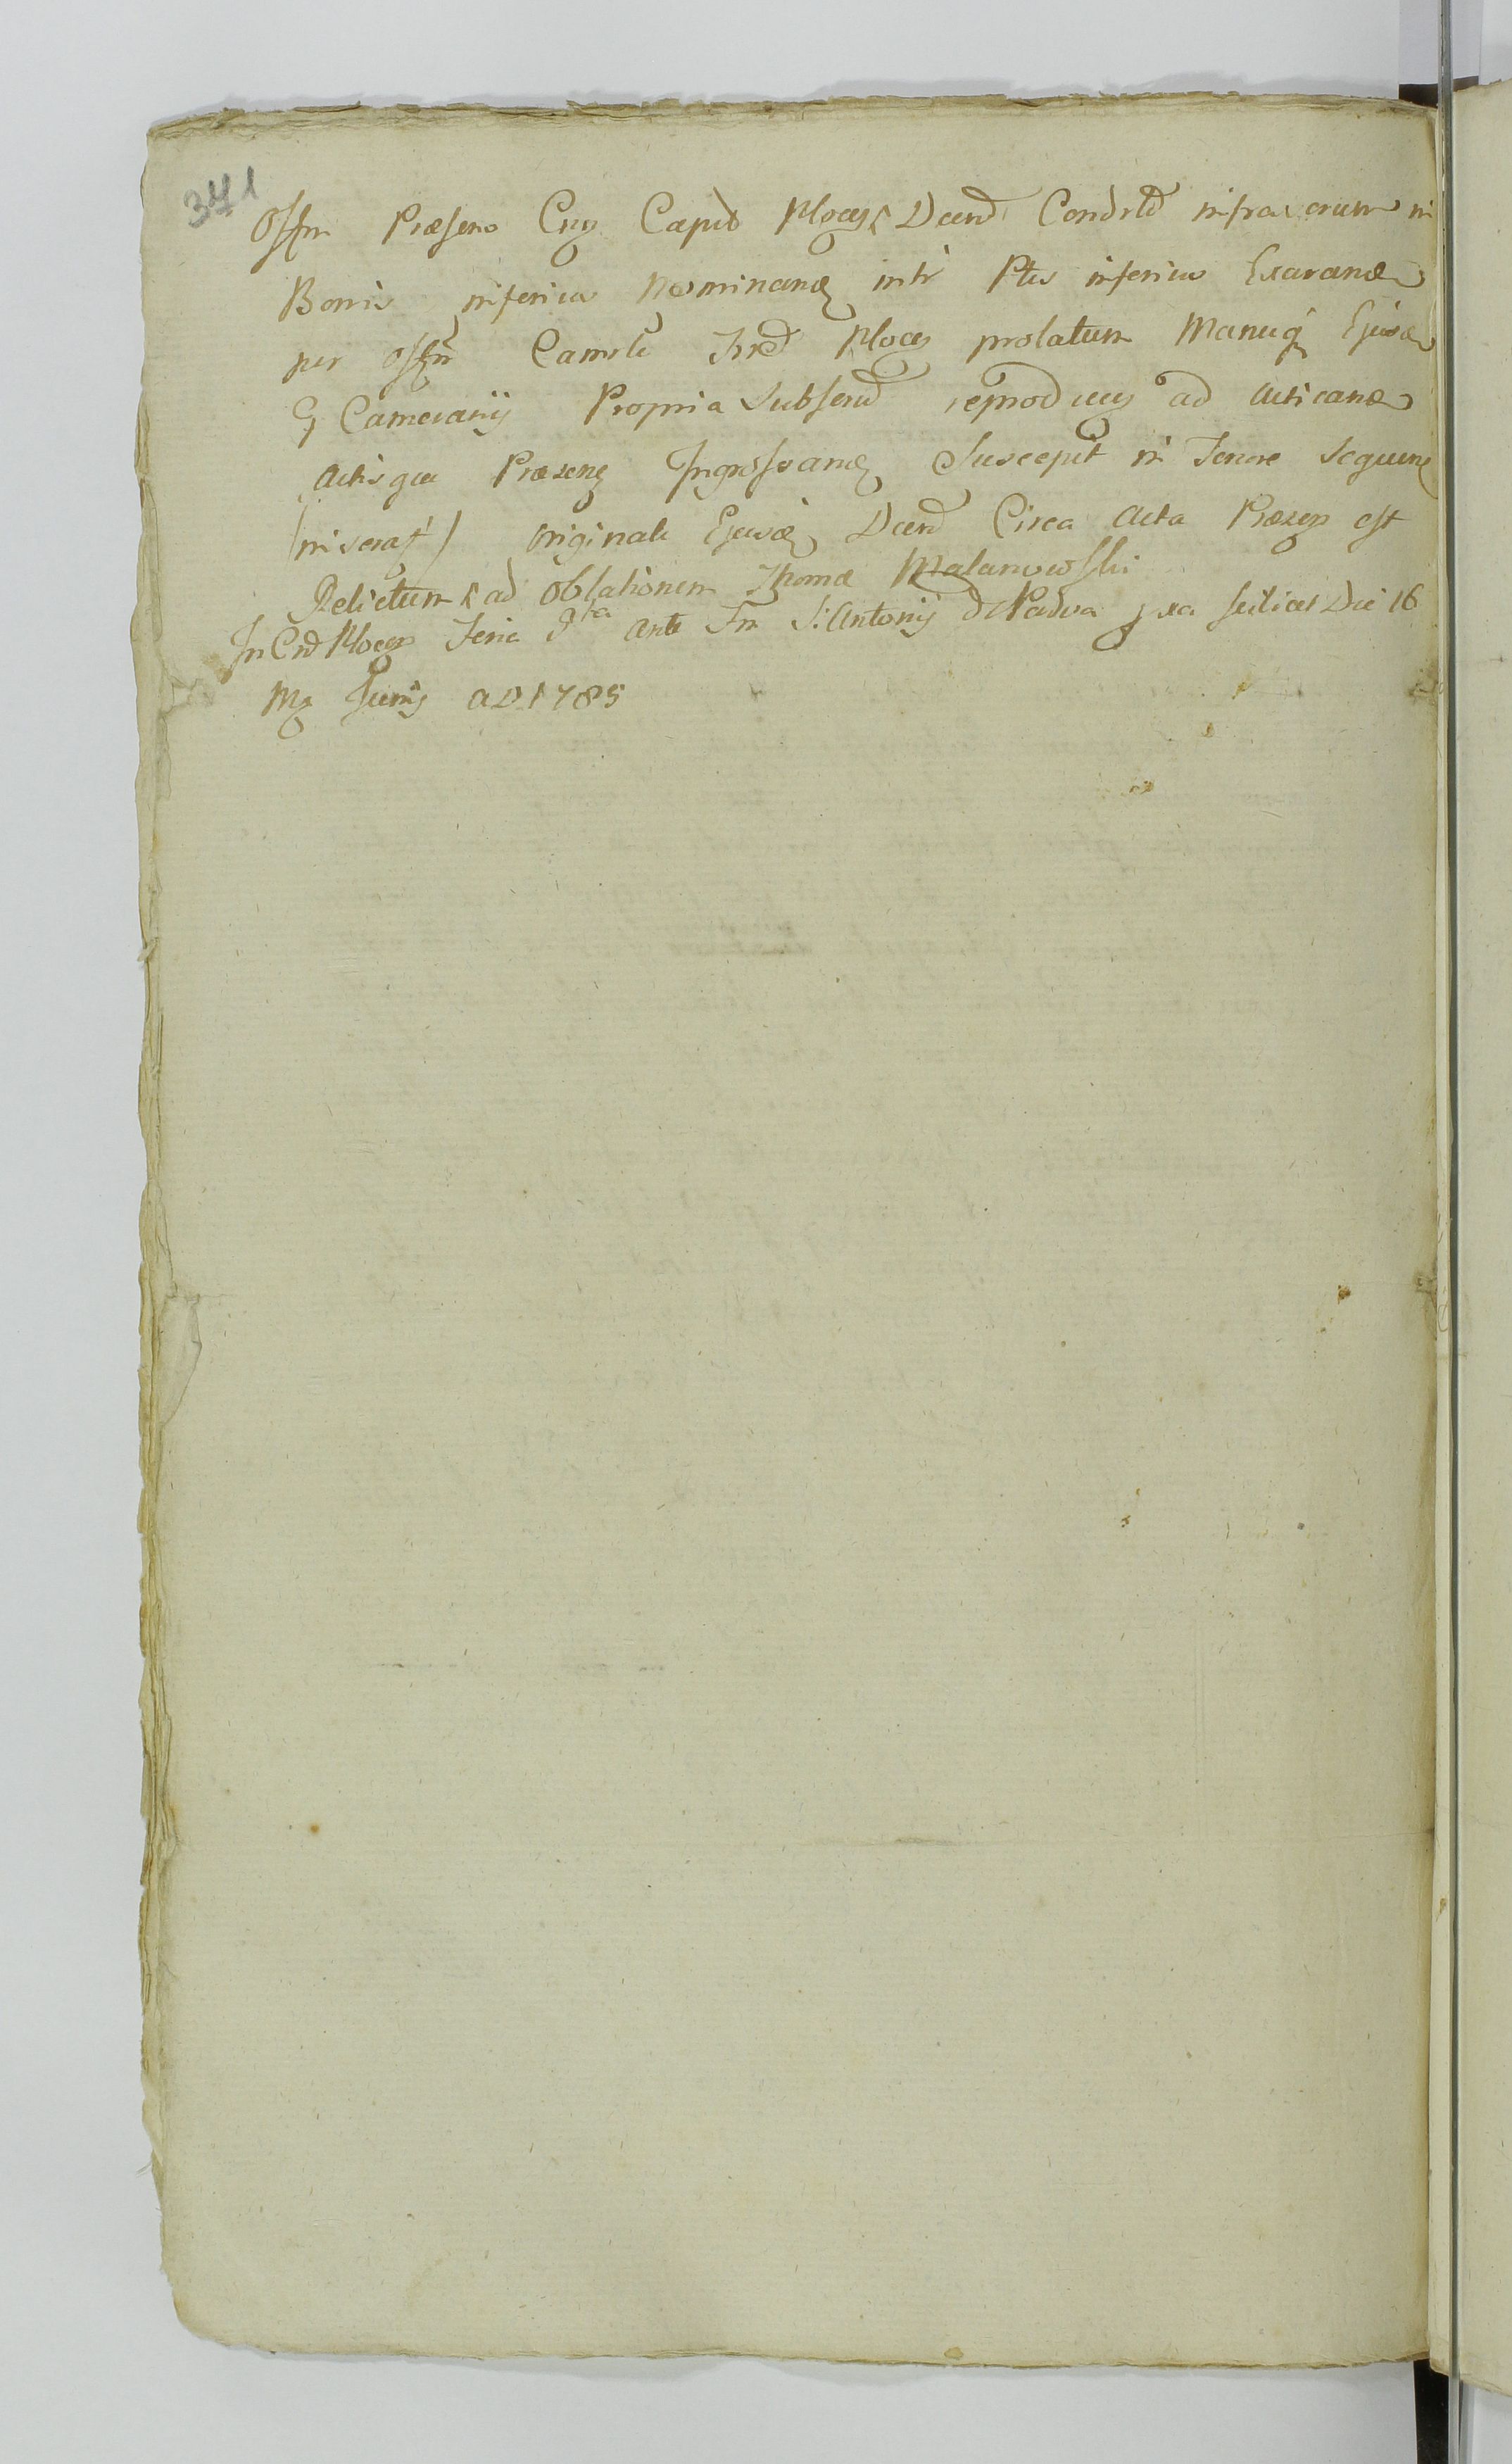 341
Offm Præsens Cng Capit Plocen Decrd Condrld infra erum in
Bonis inferius Nominand intr Ptes inferius Exarand
per Offm Camrli Trrd Plocen prolatum Manuq Ejusd
G Camerarij Propria Subscrid reproducen ad acticand
actisque Præsens Ingrossand Suscepit in Tenore sequen
/inserat/ originale Ejusd Decrd Circa acta Præsen est
Relictum ad oblationem Thomæ Malanowski
In Crd Plocen Feria 5ta ante Fm S: Antonij de Padua xa scilicet Die 16
Mg Junij AD 1785